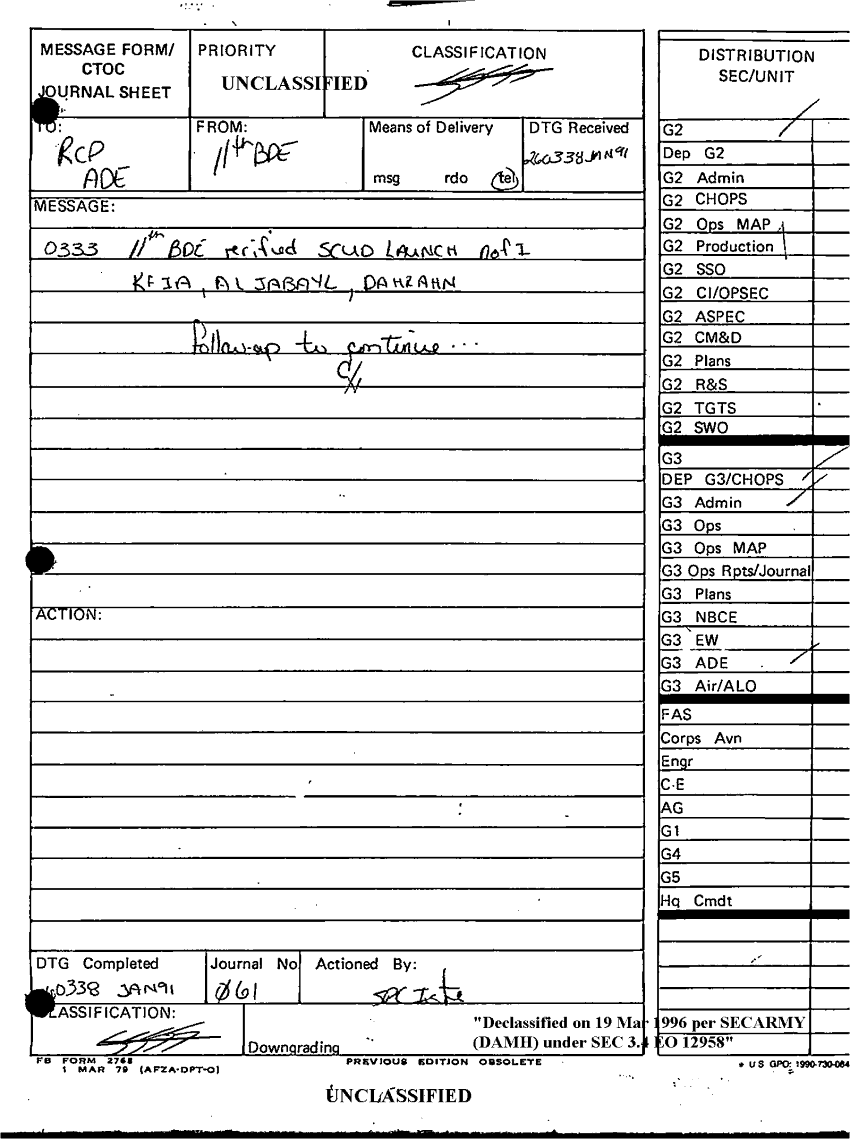 MESSAGE FORM/
CTOC
JOURNAL SHEET
PRIORITY
UNCLASSIFIED
CLASSIFICATION
TO:
RCP
ADE
FROM:
11th BDE
Means of Delivery
msg rdo tel
DTG Received
260338JAN91
MESSAGE:
0333 11th BDE verified SCUD LAUNCH not I
KFIA, AL JABAYL, DAHRAHN
follow-up to continue...
ACTION:
DTG Completed
0338 JAN91
Journal No
Ø61
Actioned By:
SPC
CLASSIFICATION:
Downgrading
"Declassified on 19 Mar 1996 per SECARMY
(DAMH) under SEC 3.4 EO 12958"
FB FORM 2768
1 MAR 79 (AFZA-DPT-O)
PREVIOUS EDITION OBSOLETE
UNCLASSIFIED
DISTRIBUTION
SEC/UNIT
G2
Dep G2
G2 Admin
G2 CHOPS
G2 Ops MAP
G2 Production
G2 SSO
G2 CI/OPSEC
G2 ASPEC
G2 CM&D
G2 Plans
G2 R&S
G2 TGTS
G2 SWO
G3
DEP G3/CHOPS
G3 Admin
G3 Ops
G3 Ops MAP
G3 Ops Rpts/Journal
G3 Plans
G3 NBCE
G3 EW
G3 ADE
G3 Air/ALO
FAS
Corps Avn
Engr
C-E
AG
G1
G4
G5
Hq Cmdt
* US GPO: 1990-730-064